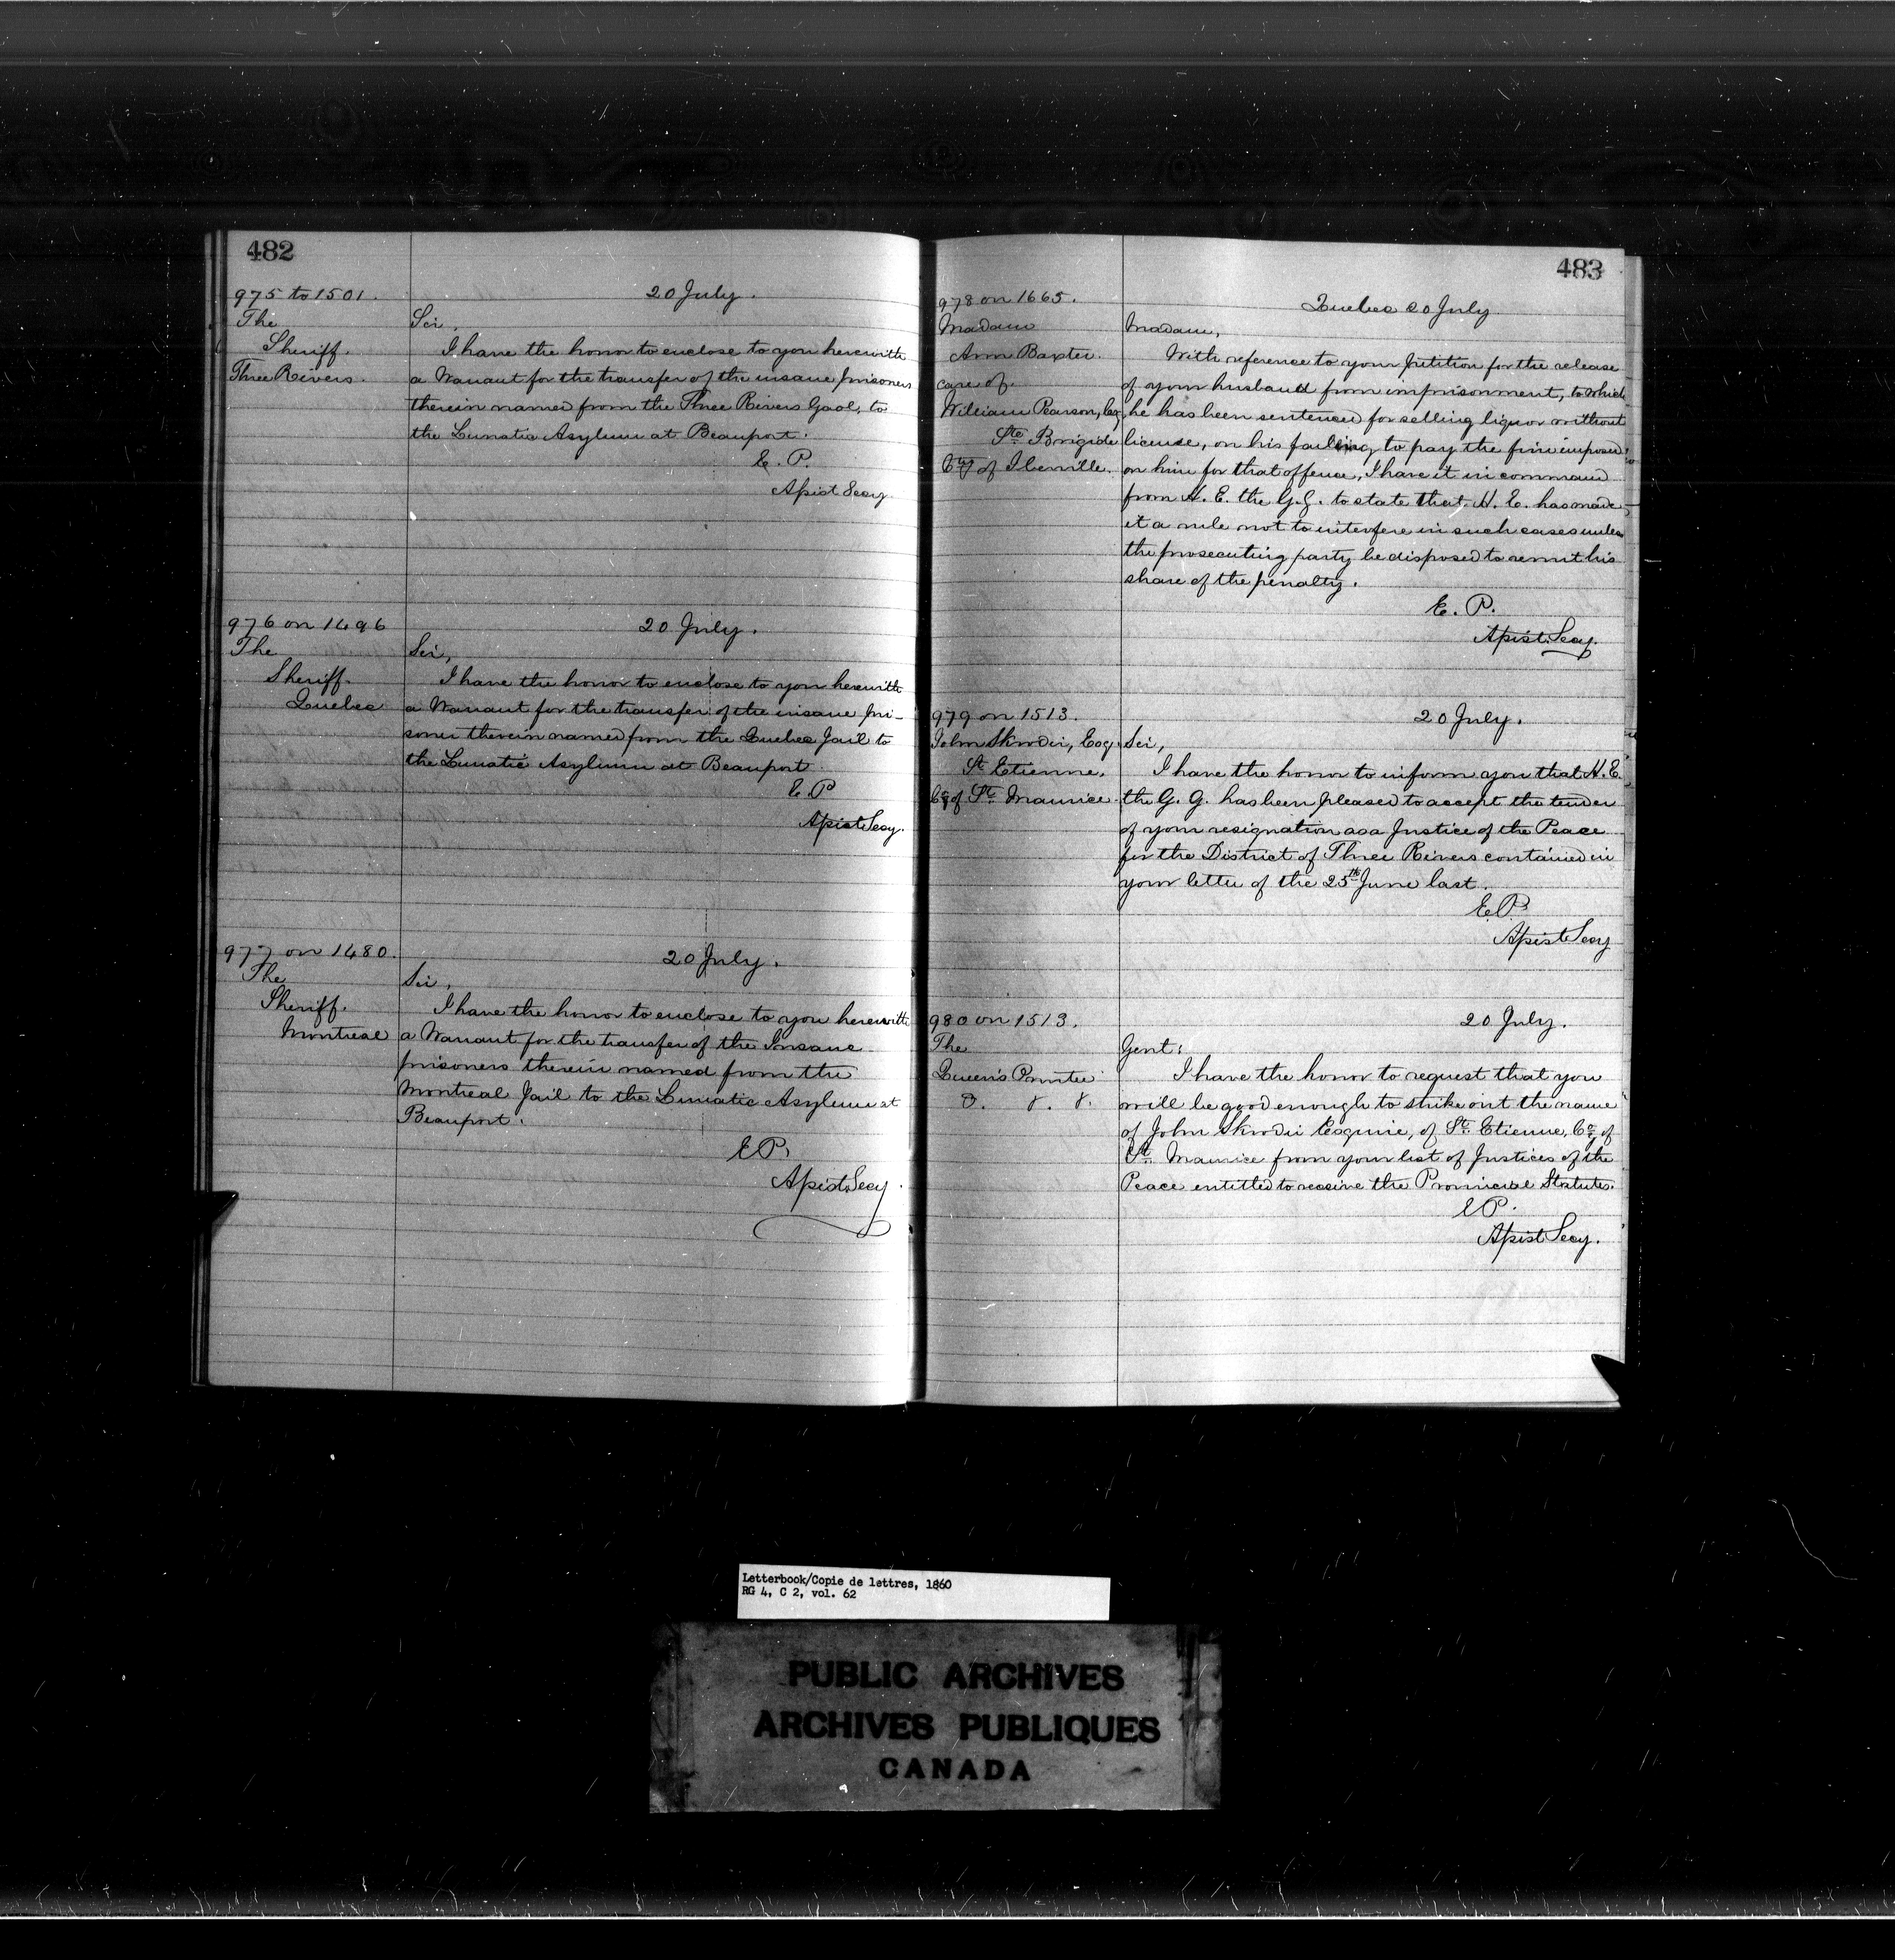 482
975 to 1501.
The
Sheriff.
Three Rivers.
20 July.
Sir,
I have the honor to enclose to you herewith
a Warrant for the transfer of the insane prisoners
therein named from the Three Rivers Gaol, to
the Lunatic Asylum at Beauport.
E. P.
Assist Secy
976 on 1496
The
Sheriff.
Quebec
20 July.
Sir,
I have the honor to enclose to you herewith
a Warrant for the transfer of the insane pri-
soner therein named from the Quebec Jail to
the Lunatic Asylum at Beauport
E. P
Assist Secy.
977 on 1480.
The
Sheriff.
Montreal
20 July.
Sir,
I have the honor to enclose to you herewith
a Warrant for the transfer of the Insane
prisoners therein named from the
Montreal Jail to the Lunatic Asylum at
Beauport.
E P.
Assist Secy.
483
978 on 1665.
Madam
Ann Baxter.
care of.
William Pearson, Esq,
Ste Brigide
Cty of Iberville.
Quebec 20 July
Madam,
With reference to your petition for the release
of your husband from imprisonment, to which
he has been sentenced for selling liquor without
license, on his failing to pay the fine imposed
on him for that offence, I have it in command
from H. E. the G. G. to state that H. E. has made
it a rule not to interfere in such cases unless
the prosecuting party be disposed to remit his
share of the penalty.
E. P.
Assist. Secy.
979 on 1513.
John Esq.
St Etienne,
Cty of St. Maurice.
20 July.
Sir,
I have the honor to inform you that H. E.
the G. G. has been pleased to accept the tender
of your resignation as a Justice of the Peace
for the District of Three Rivers contained in
your letter of the 25th June last.
E. P.
Assist Secy
980 on 1513.
The
Queen's Printer
20 July.
Gent:
I have the honor to request that you
will be good enough to strike out the name
of John Esquire, of St. Etienne, Co. of
St. Maurice from your list of Justices of the
Peace entitled to receive the Provincial Statutes.
E P.
Assist Secy.
Letterbook/Copie de lettres, 1860
RG 4, C 2, vol. 62
PUBLIC ARCHIVES
ARCHIVES PUBLIQUES
CANADA